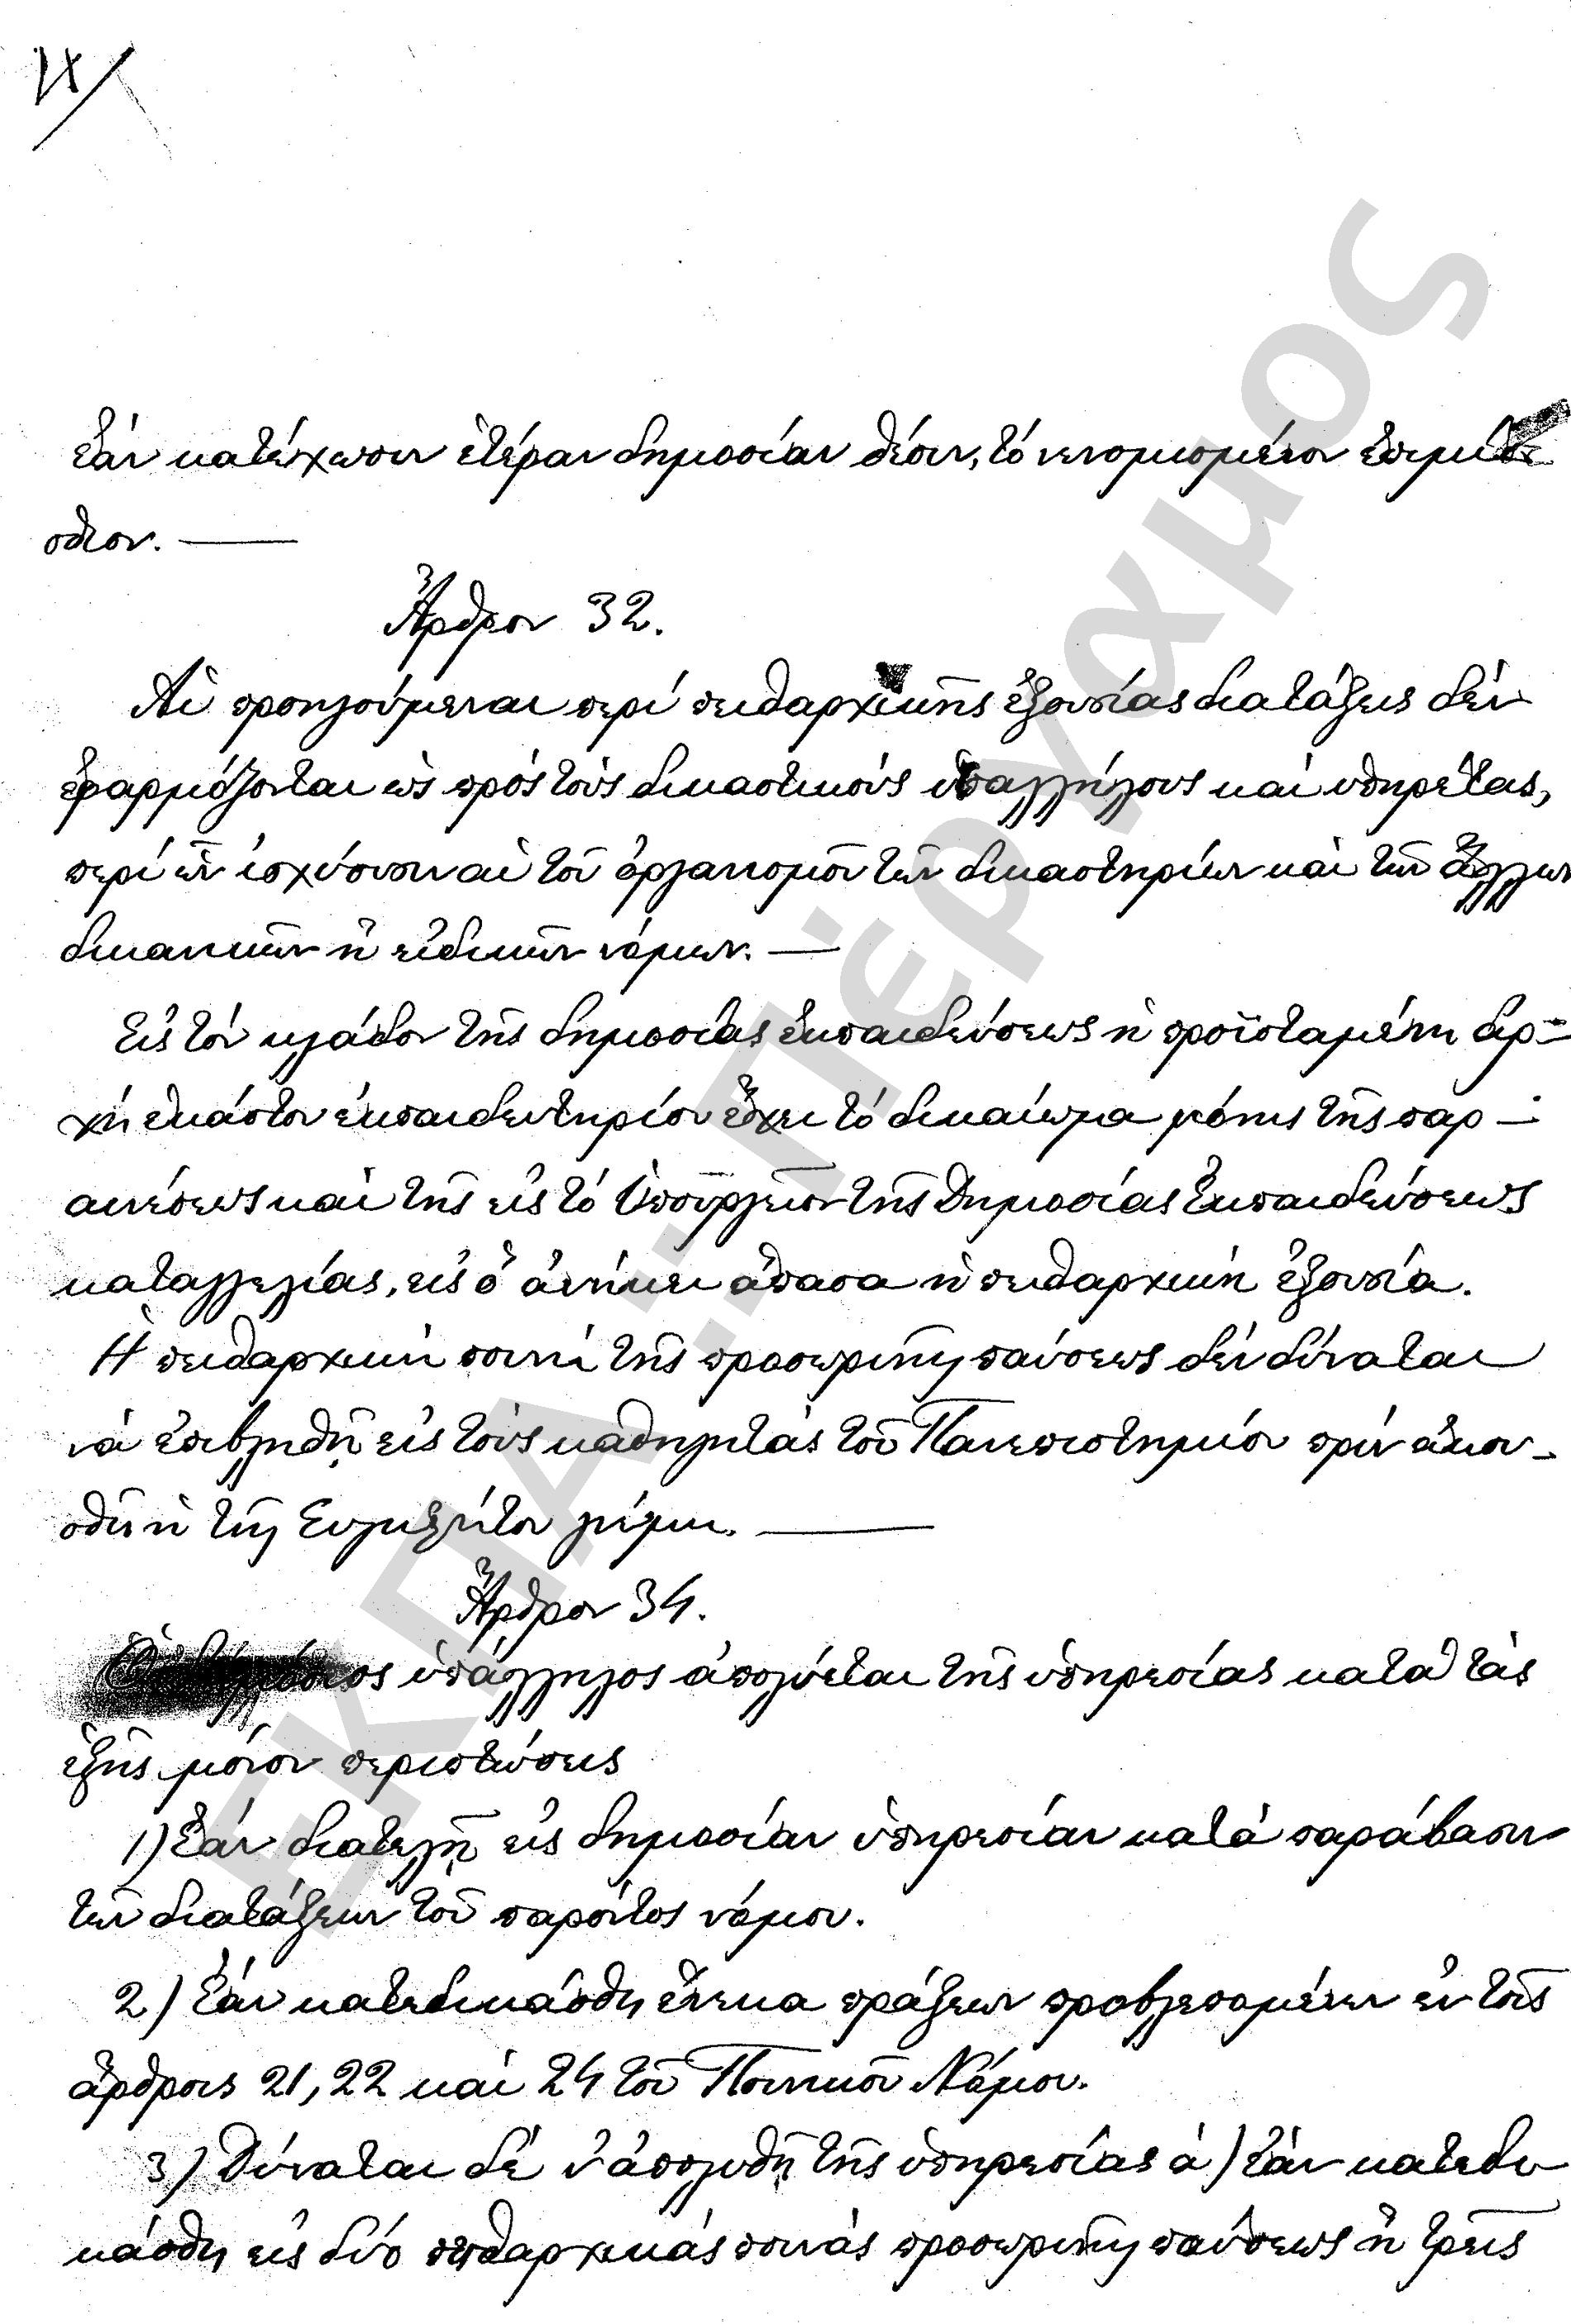 ἐάν κατέχωσιν ἑτέραν δημοσίαν θέσιν, τό νενομισμένον ἐπιμί-
σθιον. —
Ἄρθρον 32.
Αἱ προηγούμεναι περί πειθαρχικῆς ἐξουσίας διατάξεις δέν
ἐφαρμόζονται ὡς πρός τούς δικαστικούς ὑπαλλήλους καί ὑπηρέτας,
περί ὧν ἰσχύουσιν αἱ τοῦ ὀργανισμοῦ τῶν δικαστηρίων καί τῶν ἄλλων
δικανικῶν ἤ εἰδικῶν νόμων. —
Εἰς τόν κλάδον τῆς δημοσίας ἐκπαιδεύσεως ἡ προϊσταμένη ἀρ-
χή ἑκάστου ἐκπαιδευτηρίου ἔχει τό δικαίωμα μόνης τῆς παρ-
αινέσεως καί τῆς εἰς τό Ὑπουργεῖον τῆς Δημοσίας Ἐκπαιδεύσεως
καταγγελίας, εἰς ὅ ἀνήκει ἅπασα ἡ πειθαρχική ἐξουσία.
Ἡ πειθαρχική ποινή τῆς προσωρινῆς παύσεως δέν δύναται
νά ἐπιβληθῇ εἰς τούς καθηγητάς τοῦ Πανεπιστημίου πρίν ἀκου-
σθῇ ἡ τῆς Συγκλήτου γνώμη. —
Ἄρθρον 34.
Ὁ δημόσιος ὑπάλληλος ἀπολύεται τῆς ὑπηρεσίας κατά τάς
ἑξῆς μόνον περιστάσεις
1) Ἐάν διατελῇ εἰς δημοσίαν ὑπηρεσίαν κατά παράβασιν
τῶν διατάξεων τοῦ παρόντος νόμου.
2) Ἐάν κατεδικάσθη ἕνεκα πράξεων προβλεπομένων ἐν τοῖς
ἄρθροις 21, 22 καί 24 τοῦ Ποινικοῦ Νόμου.
3) Δύναται δέ ν' ἀπολυθῇ τῆς ὑπηρεσίας ἀ) ἐάν κατεδι
κάσθη εἰς δύο πειθαρχικάς ποινάς προσωρινῆς παύσεως ἤ τρεῖς
ΕΚΠΑ..Πέργαμος